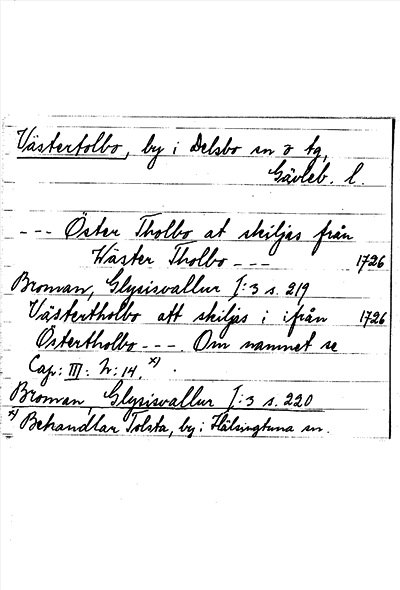 Västertolbo, by i Delsbo sn o tg,
Gävleb. l.
--- Öster Tholbo at skiljas från
Wäster Tholbo --- 1726
Broman, Glysisvallur I:3 s. 219
Västertholbo att skiljas i ifrån 1726
Östertholbo --- . Om namnet se
Cap: III: N: 14. x)
Broman, Glysisvallur I:3 s. 220
x) Behandlar Tolsta, by i Hälsingtuna sn.